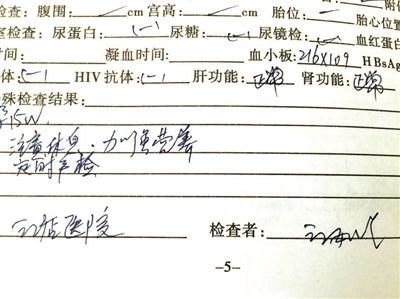 检查: 腹围: cm 宫高: cm 胎位: 附
胎心位置
室检查: 尿蛋白: (-) 尿糖: (-) 尿镜检: (-) 血红蛋白
时间: 凝血时间: 血小板: 216×109 HBsAg
体: (-) HIV抗体: (-) 肝功能: 正常 肾功能: 正常
殊检查结果:
15W
注意休息. 加强营养
定时产检
医院 检查者:
–5–